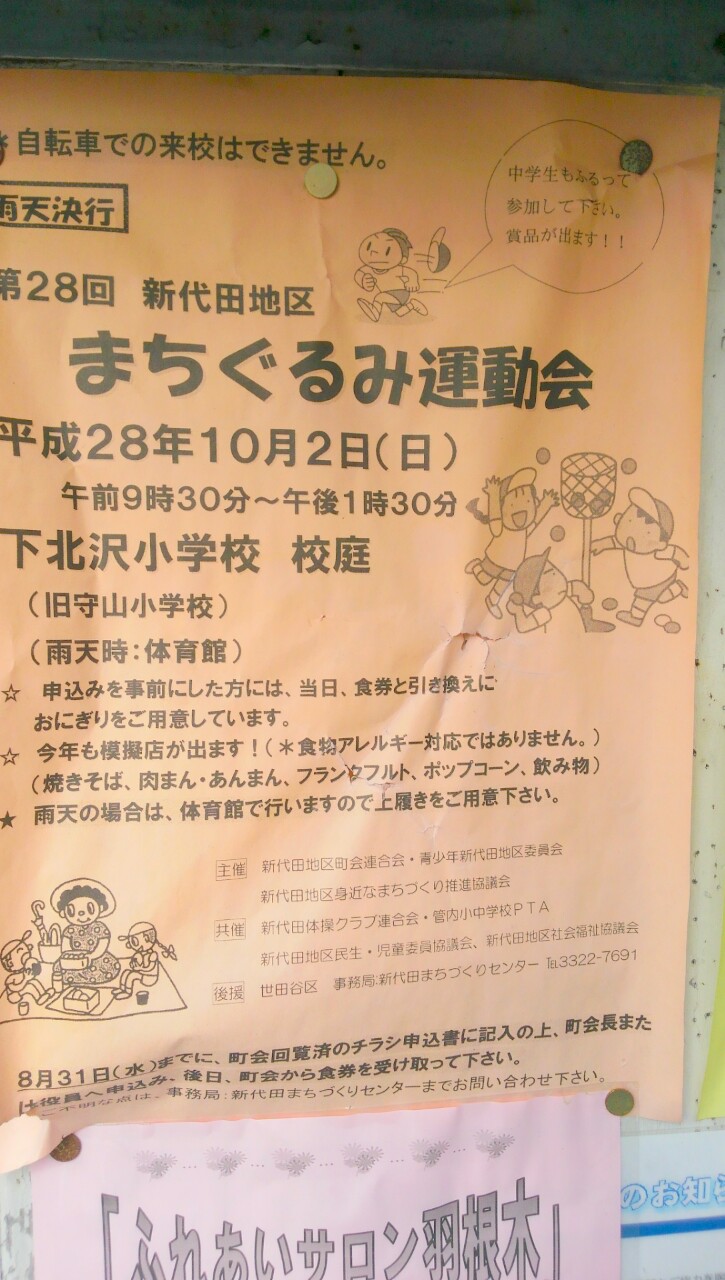 *自転車での来校はできません。
中学生もふるって
参加して下さい。
賞品が出ます！！
雨天決行
第28回 新代田地区
まちぐるみ運動会
平成28年10月2日(日)
午前9時30分～午後1時30分
下北沢小学校 校庭
(旧守山小学校)
(雨天時:体育館)
☆ 申込みを事前にした方には、当日、食券と引き換えに
おにぎりをご用意しています。
☆ 今年も模擬店が出ます！(＊食物アレルギー対応ではありません。)
(焼きそば、肉まん・あんまん、フランクフルト、ポップコーン、飲み物)
★ 雨天の場合は、体育館で行いますので上履きをご用意下さい。
主催 新代田地区町会連合会・青少年新代田地区委員会
新代田地区身近なまちづくり推進協議会
共催 新代田体操クラブ連合会・管内小中学校PTA
新代田地区民生・児童委員協議会、新代田地区社会福祉協議会
後援 世田谷区 事務局:新代田まちづくりセンター ℡3322-7691
8月31日(水)までに、町会回覧済のチラシ申込書に記入の上、町会長また
は役員へ申込み、後日、町会から食券を受け取って下さい。
ご不明な点は、事務局:新代田まちづくりセンターまでお問い合わせ下さい。
「ふれあいサロン羽根木」
のお知ら